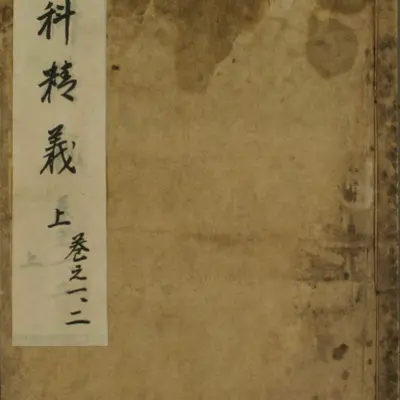 科精義
上
巻之一、二